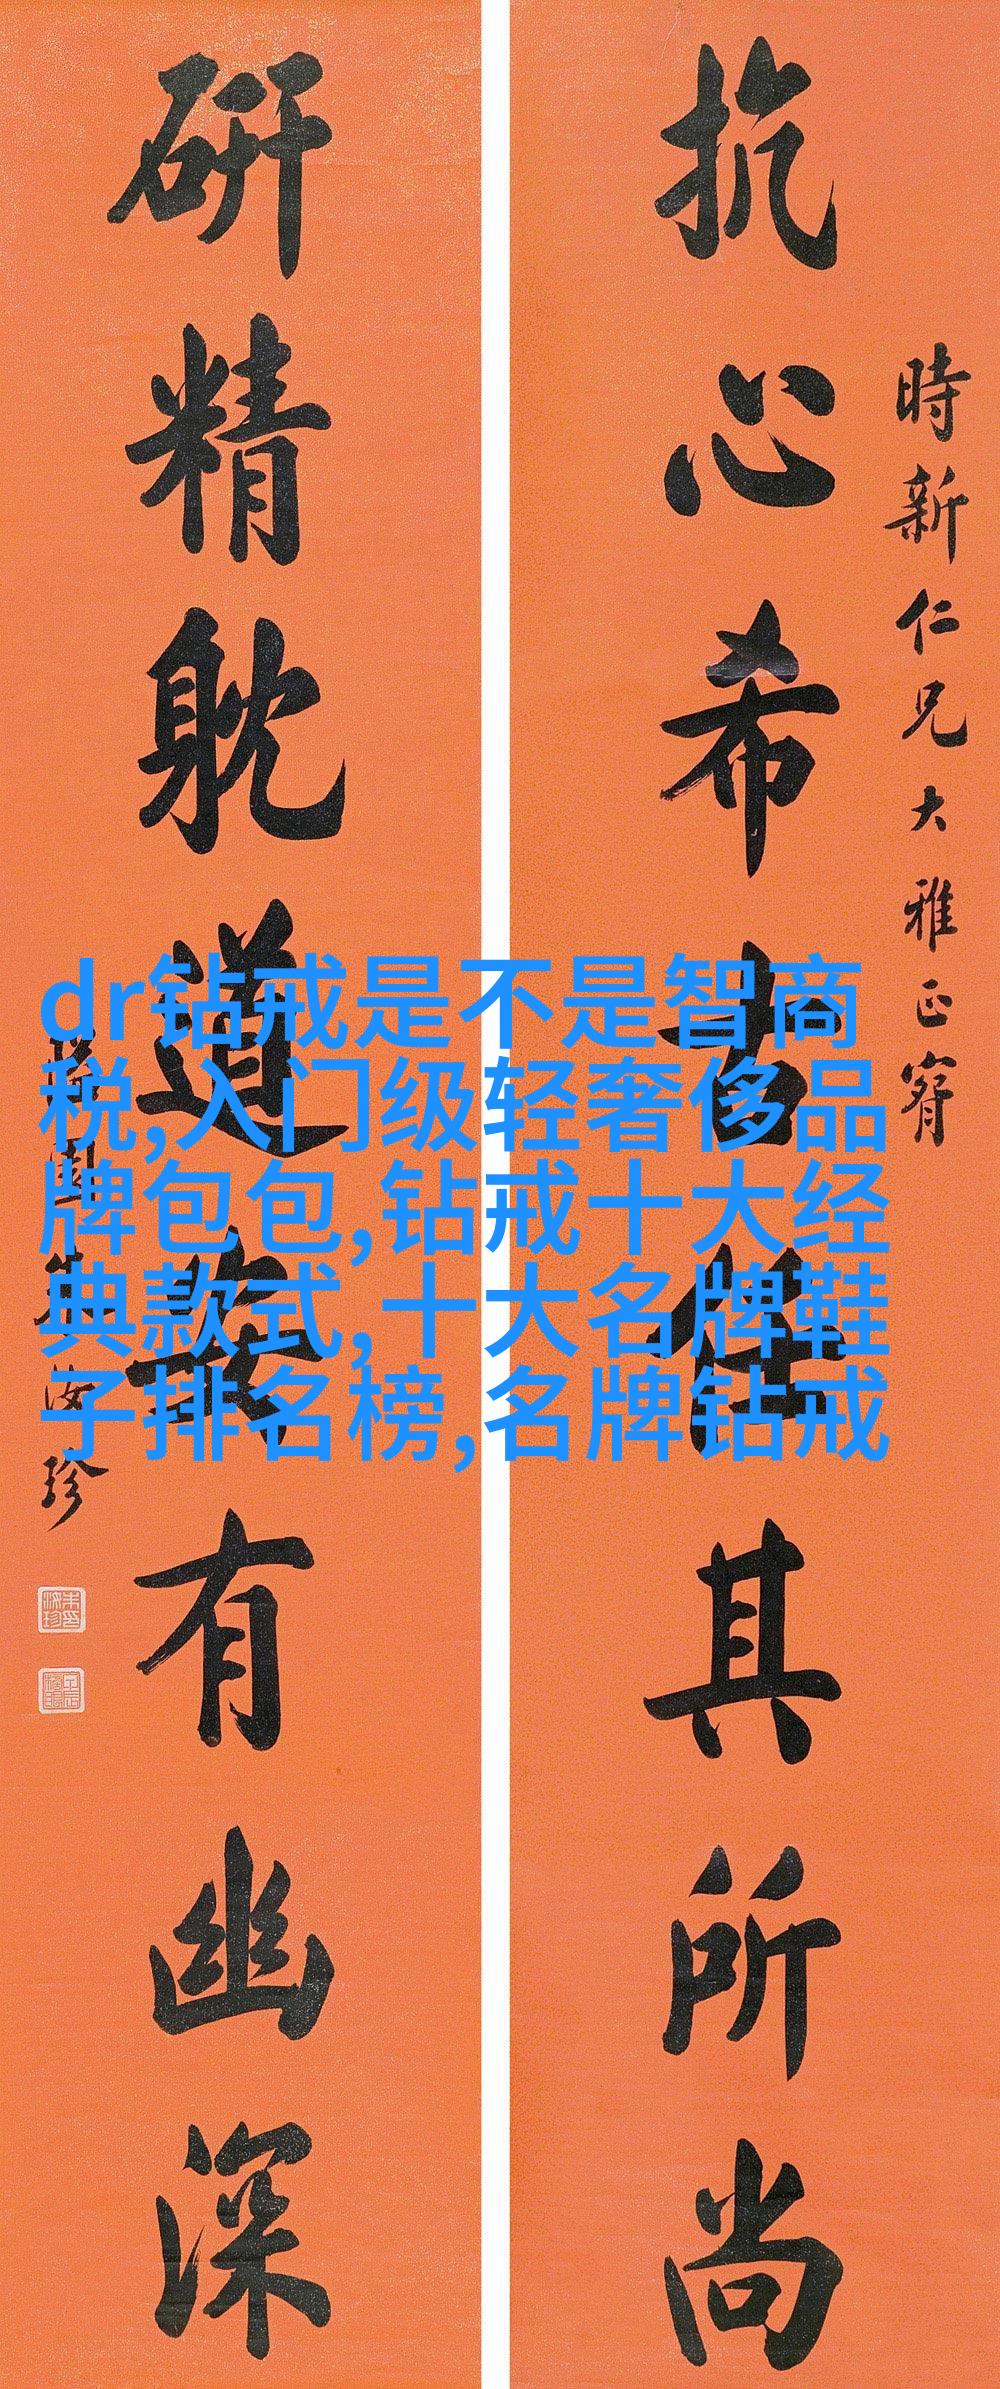 時新仁兄大雅正
抗心希古任其所尚
研精躭道安有幽深
園朱汝珍
dr钻戒是不是智商
税,入门级轻奢侈品
牌包包,钻戒十大经
典款式,十大名牌鞋
子排名榜,名牌钻戒